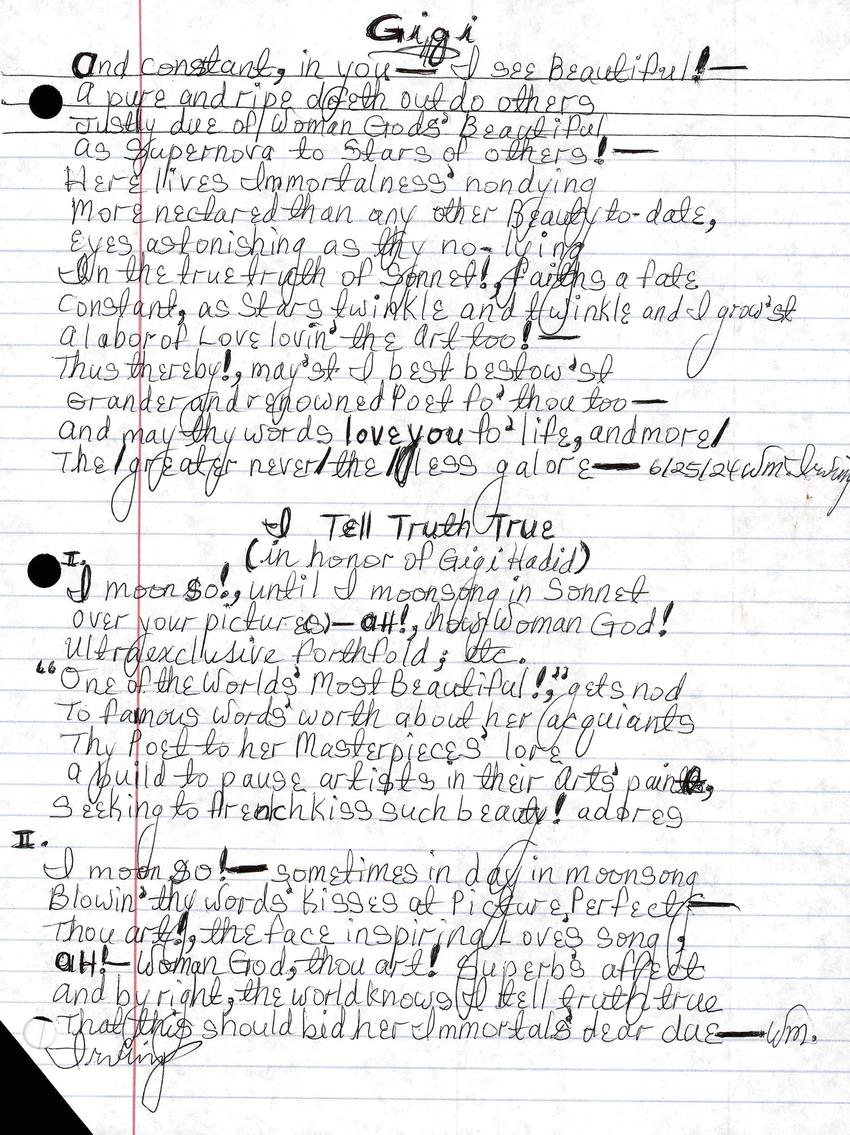 Gigi
And constant, in you— I see Beautiful!—
A pure and ripe doeth out do others
Justly due of Woman Gods' Beautiful
As Supernova to Stars of others!—
Here lives Immortalness' nondying
More nectared than any other Beauty to-date,
Eyes astonishing as thy no-lying
In the true truth of Sonnet!, faiths a fate
Constant, as Stars twinkle and twinkle and I grow'st
A labor of Love lovin' the Art too!—
Thus thereby!, may'st I best bestow'st
Grander and renowned Poet fo' thou too—
And may thy words love you fo' life, and more/
The/greater never/the/less galore— 6/25/24 Wm. Irving
I Tell Truth True
(in honor of Gigi Hadid)
I.
I moon so!, until I moonsong in Sonnet
Over your picture(s)— AH!, how Woman God!
Ultraexclusive forthfold; etc.
"One of the Worlds' Most Beautiful!," gets nod
To famous Words' worth about her acquiants
Thy Poet to her Masterpieces' lore
A build to pause artists in their Arts' paint,
Seeking to french kiss such beauty! adores
II.
I moon so!— sometimes in day in moonsong
Blowin' thy words' kisses at Picture Perfect—
Thou art!, the face inspiring Loves song;
AH!— Woman God, thou art! Superb's affect
And by right, the world knows I tell truth true
That this should bid her Immortals' dear due— Wm.
Irving